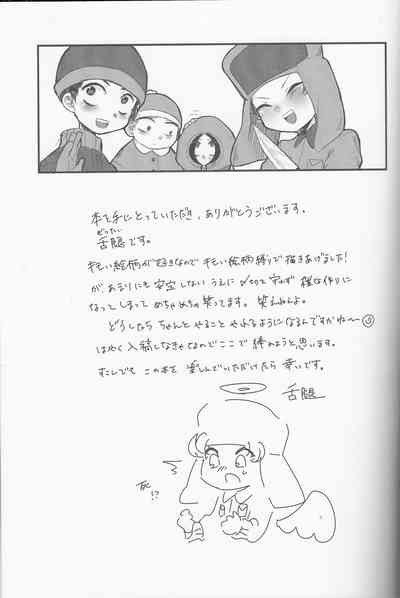 本を手にとっていただき、ありがとうございます。
ぜったい
舌腿です。
キモい絵柄が好きなので キモい絵柄縛りで描きあげました!
があまりにも安定しないうえに〆切も守れず 雑な作りに
なってしまって めちゃめちゃ笑ってます。 笑えねんよ。
どうしたら ちゃんとやること やれるようになるんですかね〜
はやく入稿しなきゃなのでここで 締めようと思います。
すこしでも この本を 楽しんでいただけたら 幸いです。
舌腿
死!?